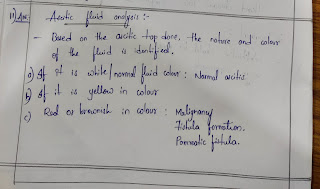 11) Ans: Ascitic fluid analysis :-
- Based on the ascitic tap done, the nature and colour
of the fluid is identified.
a) If it is white/normal fluid color : Normal ascitis.
b) If it is yellow in colour
c) Red or brownish in colour : Malignancy
Fistula formation,
Pancreatic fistula.